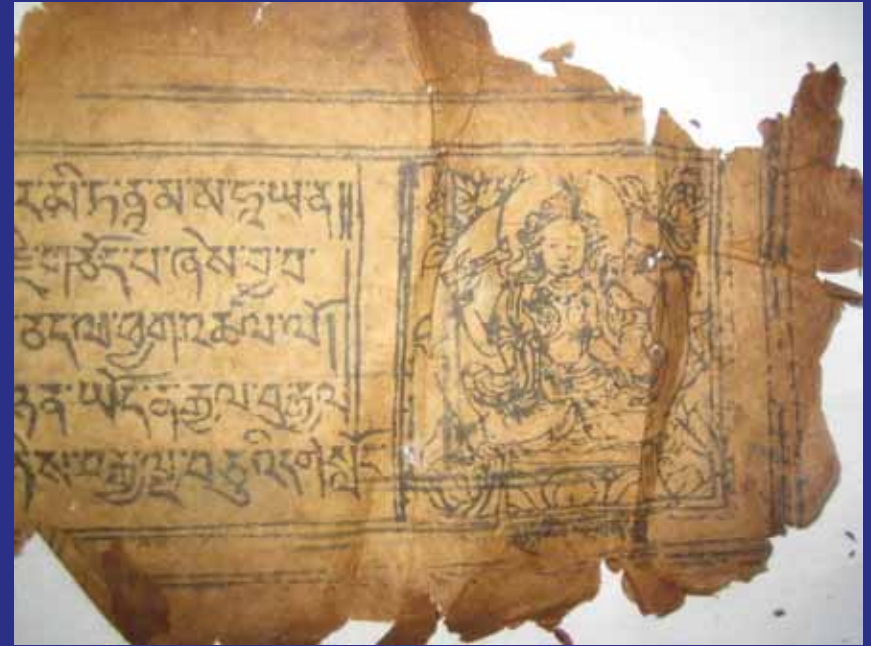 ར་མི་ཏ་ནཱ་མ་མ་ཧཱ་ཡ་ན།།
གཅོད་པ་ཞེས་བྱ་བ་
ཅད་ལ་ཕྱག་འཚལ་ལོ།།
ཉན་ཡོད་ན་རྒྱལ་བུ་རྒྱལ
བརྒྱ་ལྔ་བཅུའི་དགེ་སློང